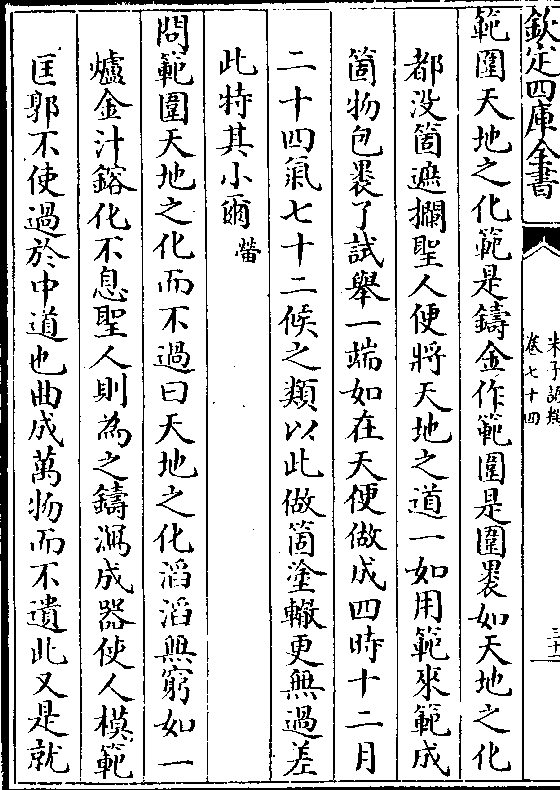 欽定四庫全書
朱子語類
卷七十四
三十二
範圍天地之化範是鑄金作範圍是圍裹如天地之化
都没箇遮攔聖人便將天地之道一如用範來範成
箇物包裹了試舉一端如在天便做成四時十二月
二十四氣七十二候之類以此做箇塗轍更無過差
此特其小爾𮎰
問範圍天地之化而不過曰天地之化滔滔無窮如一
爐金汁鎔化不息聖人則為之鑄瀉成器使人模範
匡郭不使過於中道也曲成萬物而不遺此又是就